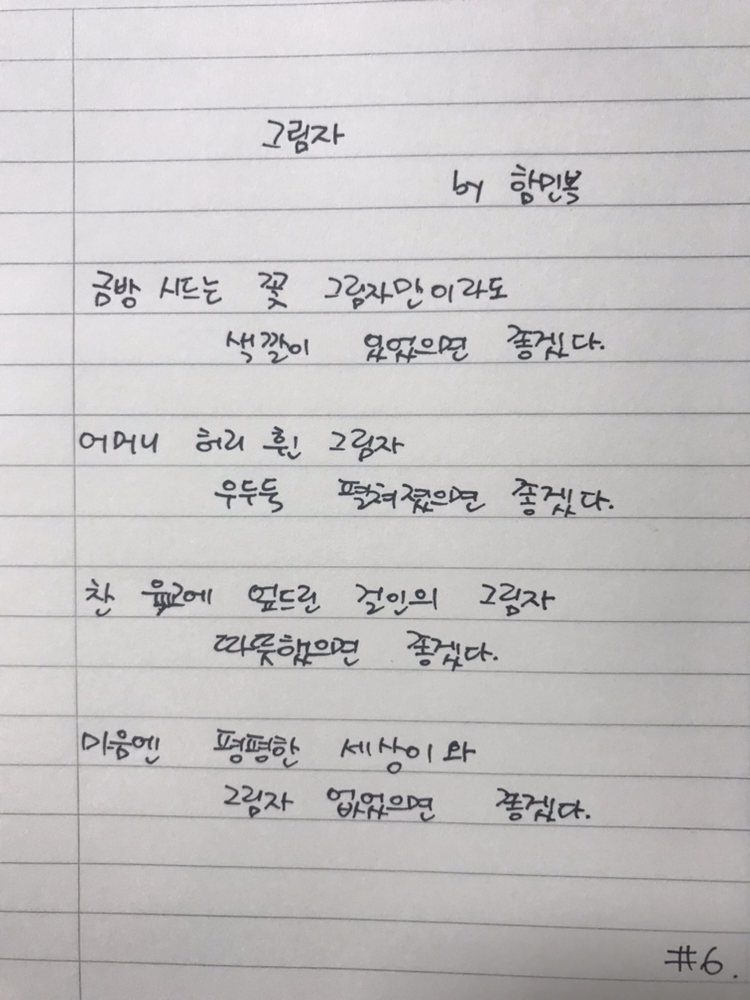 그림자
by 함민복
금방 시드는 꽃 그림자만이라도
색깔이 있었으면 좋겠다.
어머니 허리 휜 그림자
우두둑 펼쳐졌으면 좋겠다.
찬 육교에 엎드린 걸인의 그림자
따뜻했으면 좋겠다.
마음엔 평평한 세상이 와
그림자 없었으면 좋겠다.
#6.